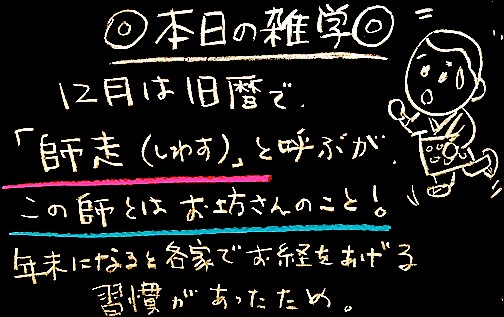 ◎本日の雑学◎
12月は旧暦で、
「師走(しわす)」と呼ぶが、
この師とはお坊さんのこと!
年末になると各家でお経をあげる
習慣があったため。